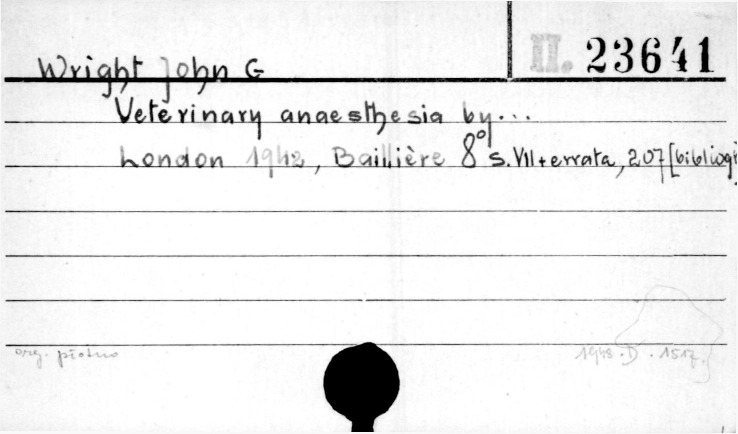 Wright John G
II. 23641
Veterinary anaesthesia by...
London 1942, Baillière 8° s. VII+errata, 207 [bibliogr
org. płótno
1948. D. 1517.